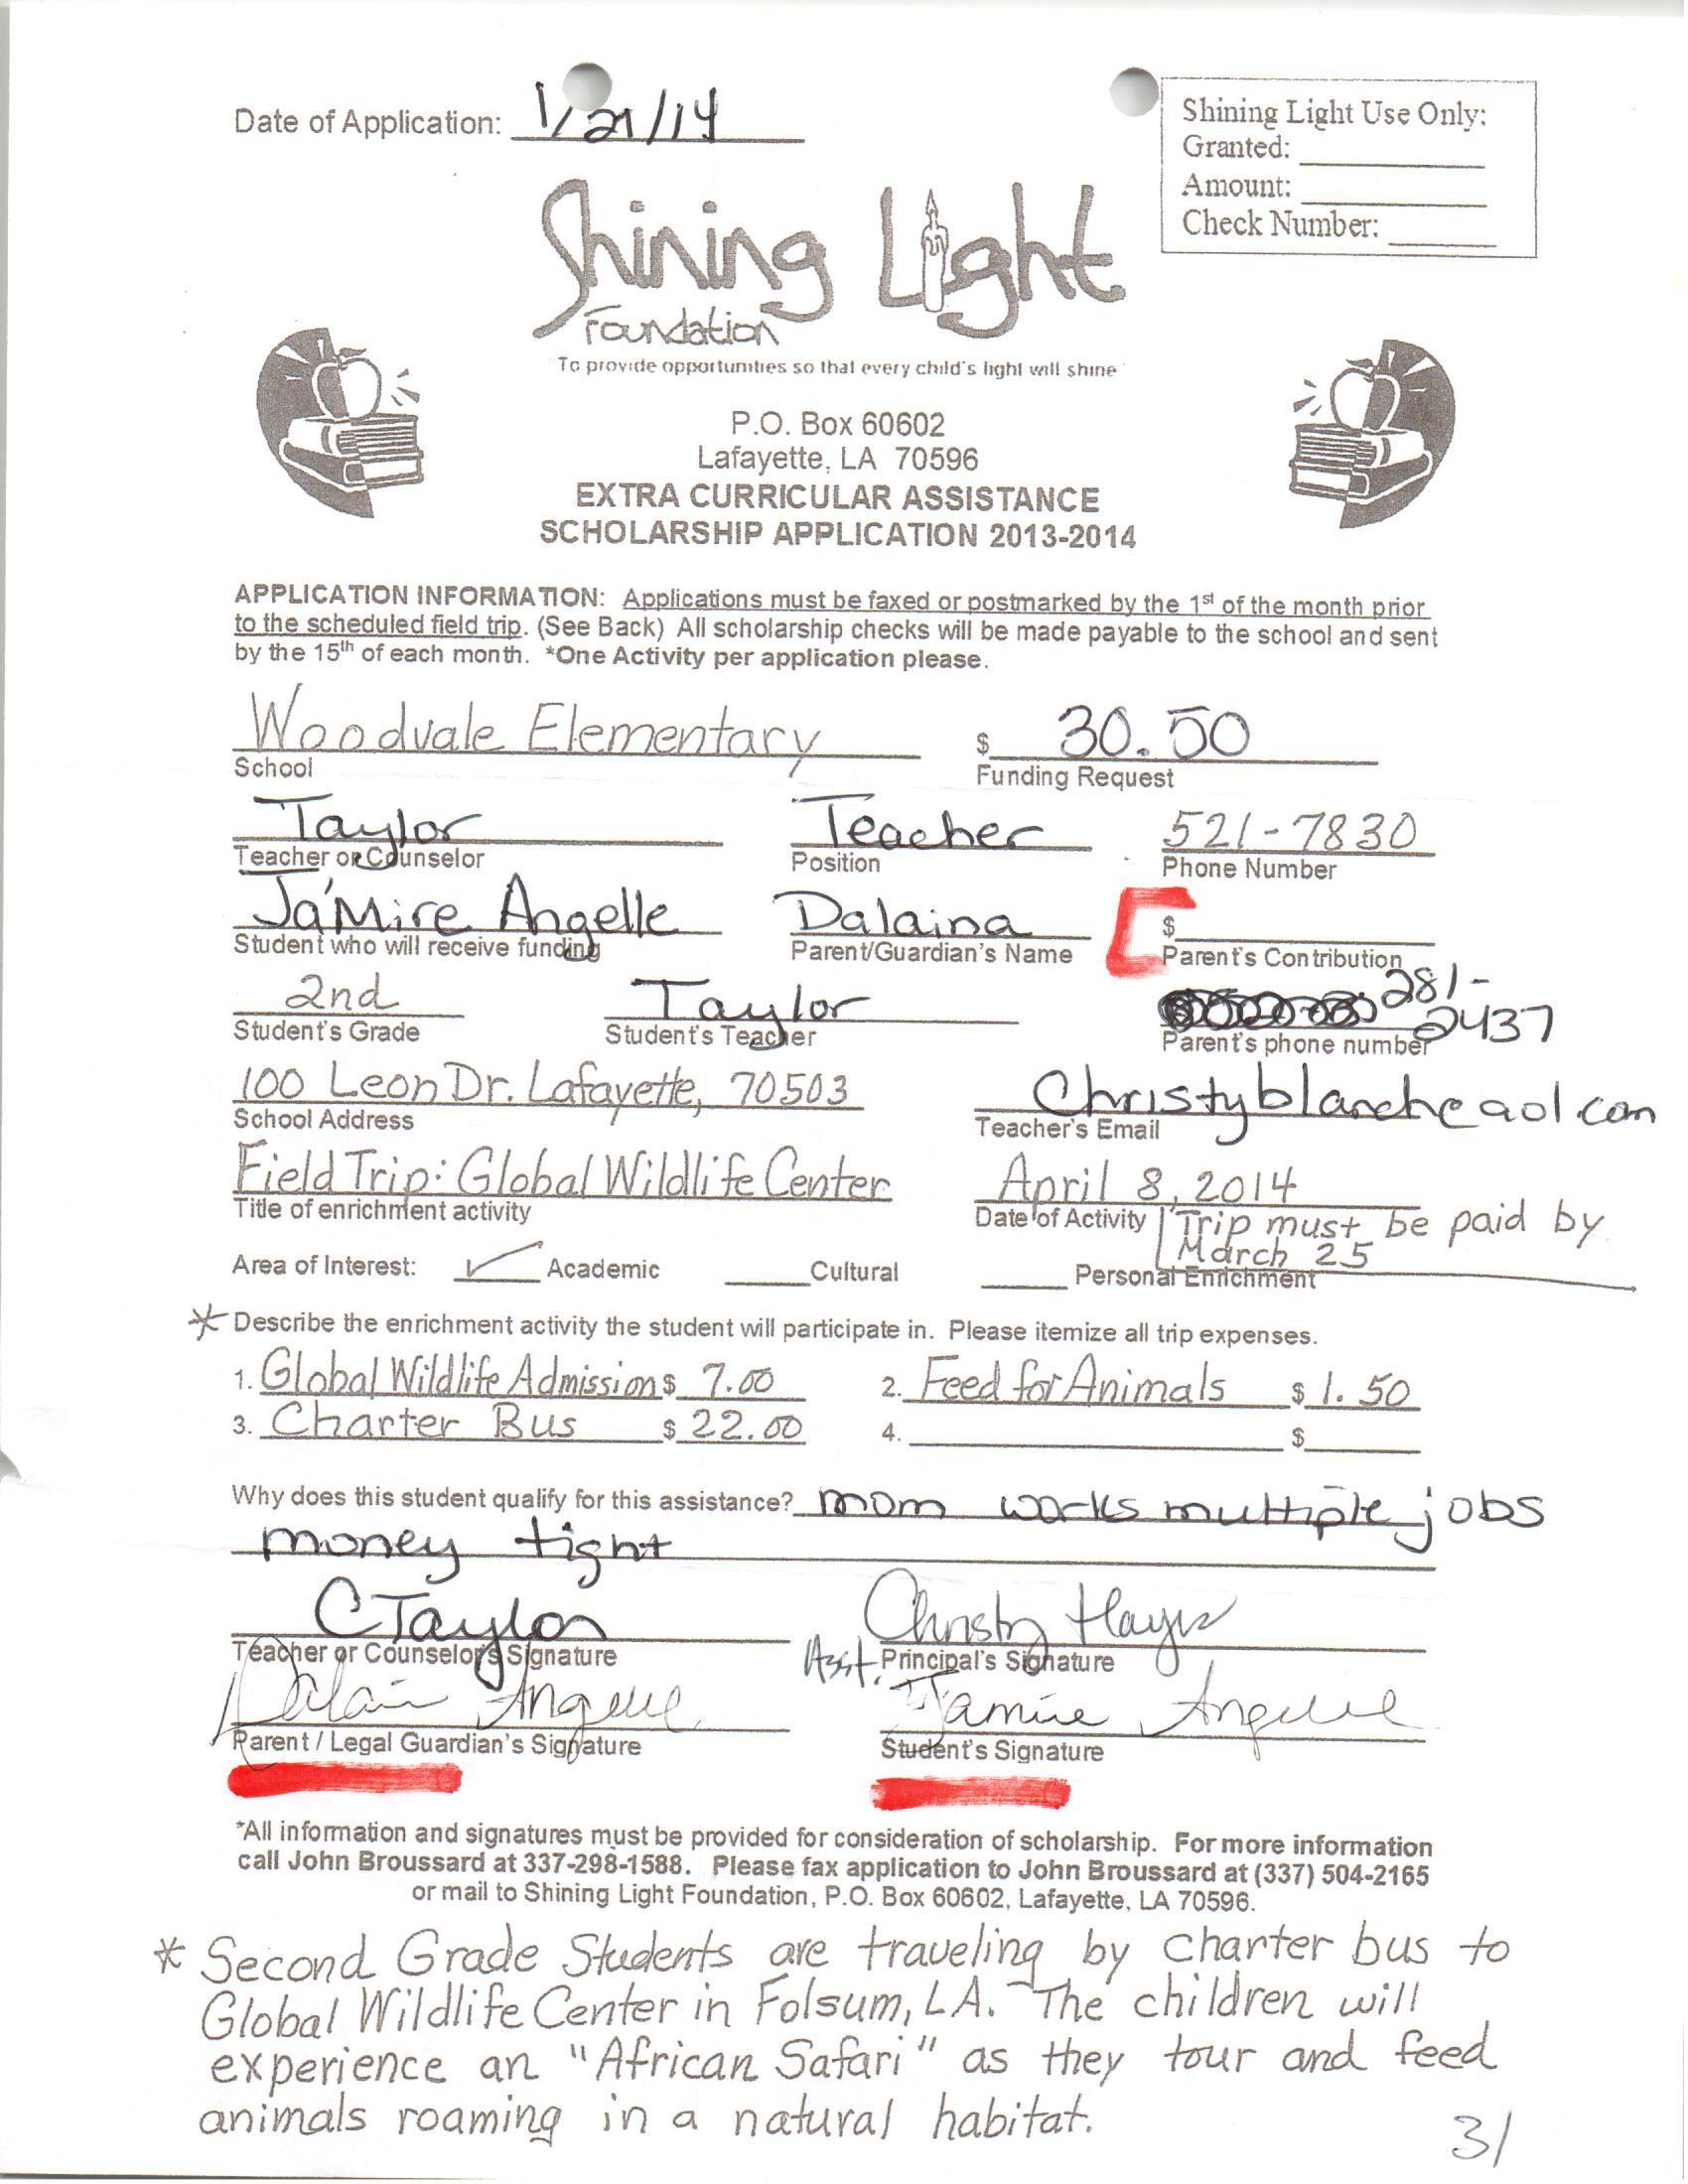 Date of Application: 1/21/14
Shining Light Use Only:
Granted:
Amount:
Check Number:
Shining Light
Foundation
"To provide opportunities so that every child's light will shine"
P.O. Box 60602
Lafayette, LA 70596
EXTRA CURRICULAR ASSISTANCE
SCHOLARSHIP APPLICATION 2013-2014
APPLICATION INFORMATION: Applications must be faxed or postmarked by the 1st of the month prior
to the scheduled field trip. (See Back) All scholarship checks will be made payable to the school and sent
by the 15th of each month. *One Activity per application please.
Woodvale Elementary $ 30.50
School Funding Request
Taylor Teacher 521-7830
Teacher or Counselor Position Phone Number
Ja'Mire Angelle Dalaina $
Student who will receive funding Parent/Guardian's Name Parent's Contribution
2nd Taylor 281-2437
Student's Grade Student's Teacher Parent's phone number
100 Leon Dr. Lafayette, 70503 Christyblanche aol.com
School Address Teacher's Email
Field Trip: Global Wildlife Center April 8, 2014
Title of enrichment activity Date of Activity Trip must be paid by
March 25
Area of Interest: ✓ Academic Cultural Personal Enrichment
* Describe the enrichment activity the student will participate in. Please itemize all trip expenses.
1. Global Wildlife Admission $ 7.00 2. Feed for Animals $ 1.50
3. Charter Bus $ 22.00 4. $
Why does this student qualify for this assistance? mom works multiple jobs
money tight
C Taylor Christy Hayes
Teacher or Counselor's Signature Asst. Principal's Signature
Dalain Angelle Jamire Angelle
Parent / Legal Guardian's Signature Student's Signature
*All information and signatures must be provided for consideration of scholarship. For more information
call John Broussard at 337-298-1588. Please fax application to John Broussard at (337) 504-2165
or mail to Shining Light Foundation, P.O. Box 60602, Lafayette, LA 70596.
* Second Grade Students are traveling by charter bus to
Global Wildlife Center in Folsum, LA. The children will
experience an "African Safari" as they tour and feed
animals roaming in a natural habitat.
31